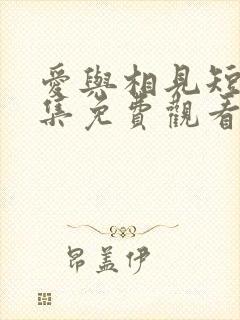 愛與相見短
集免費觀看
昂盖伊